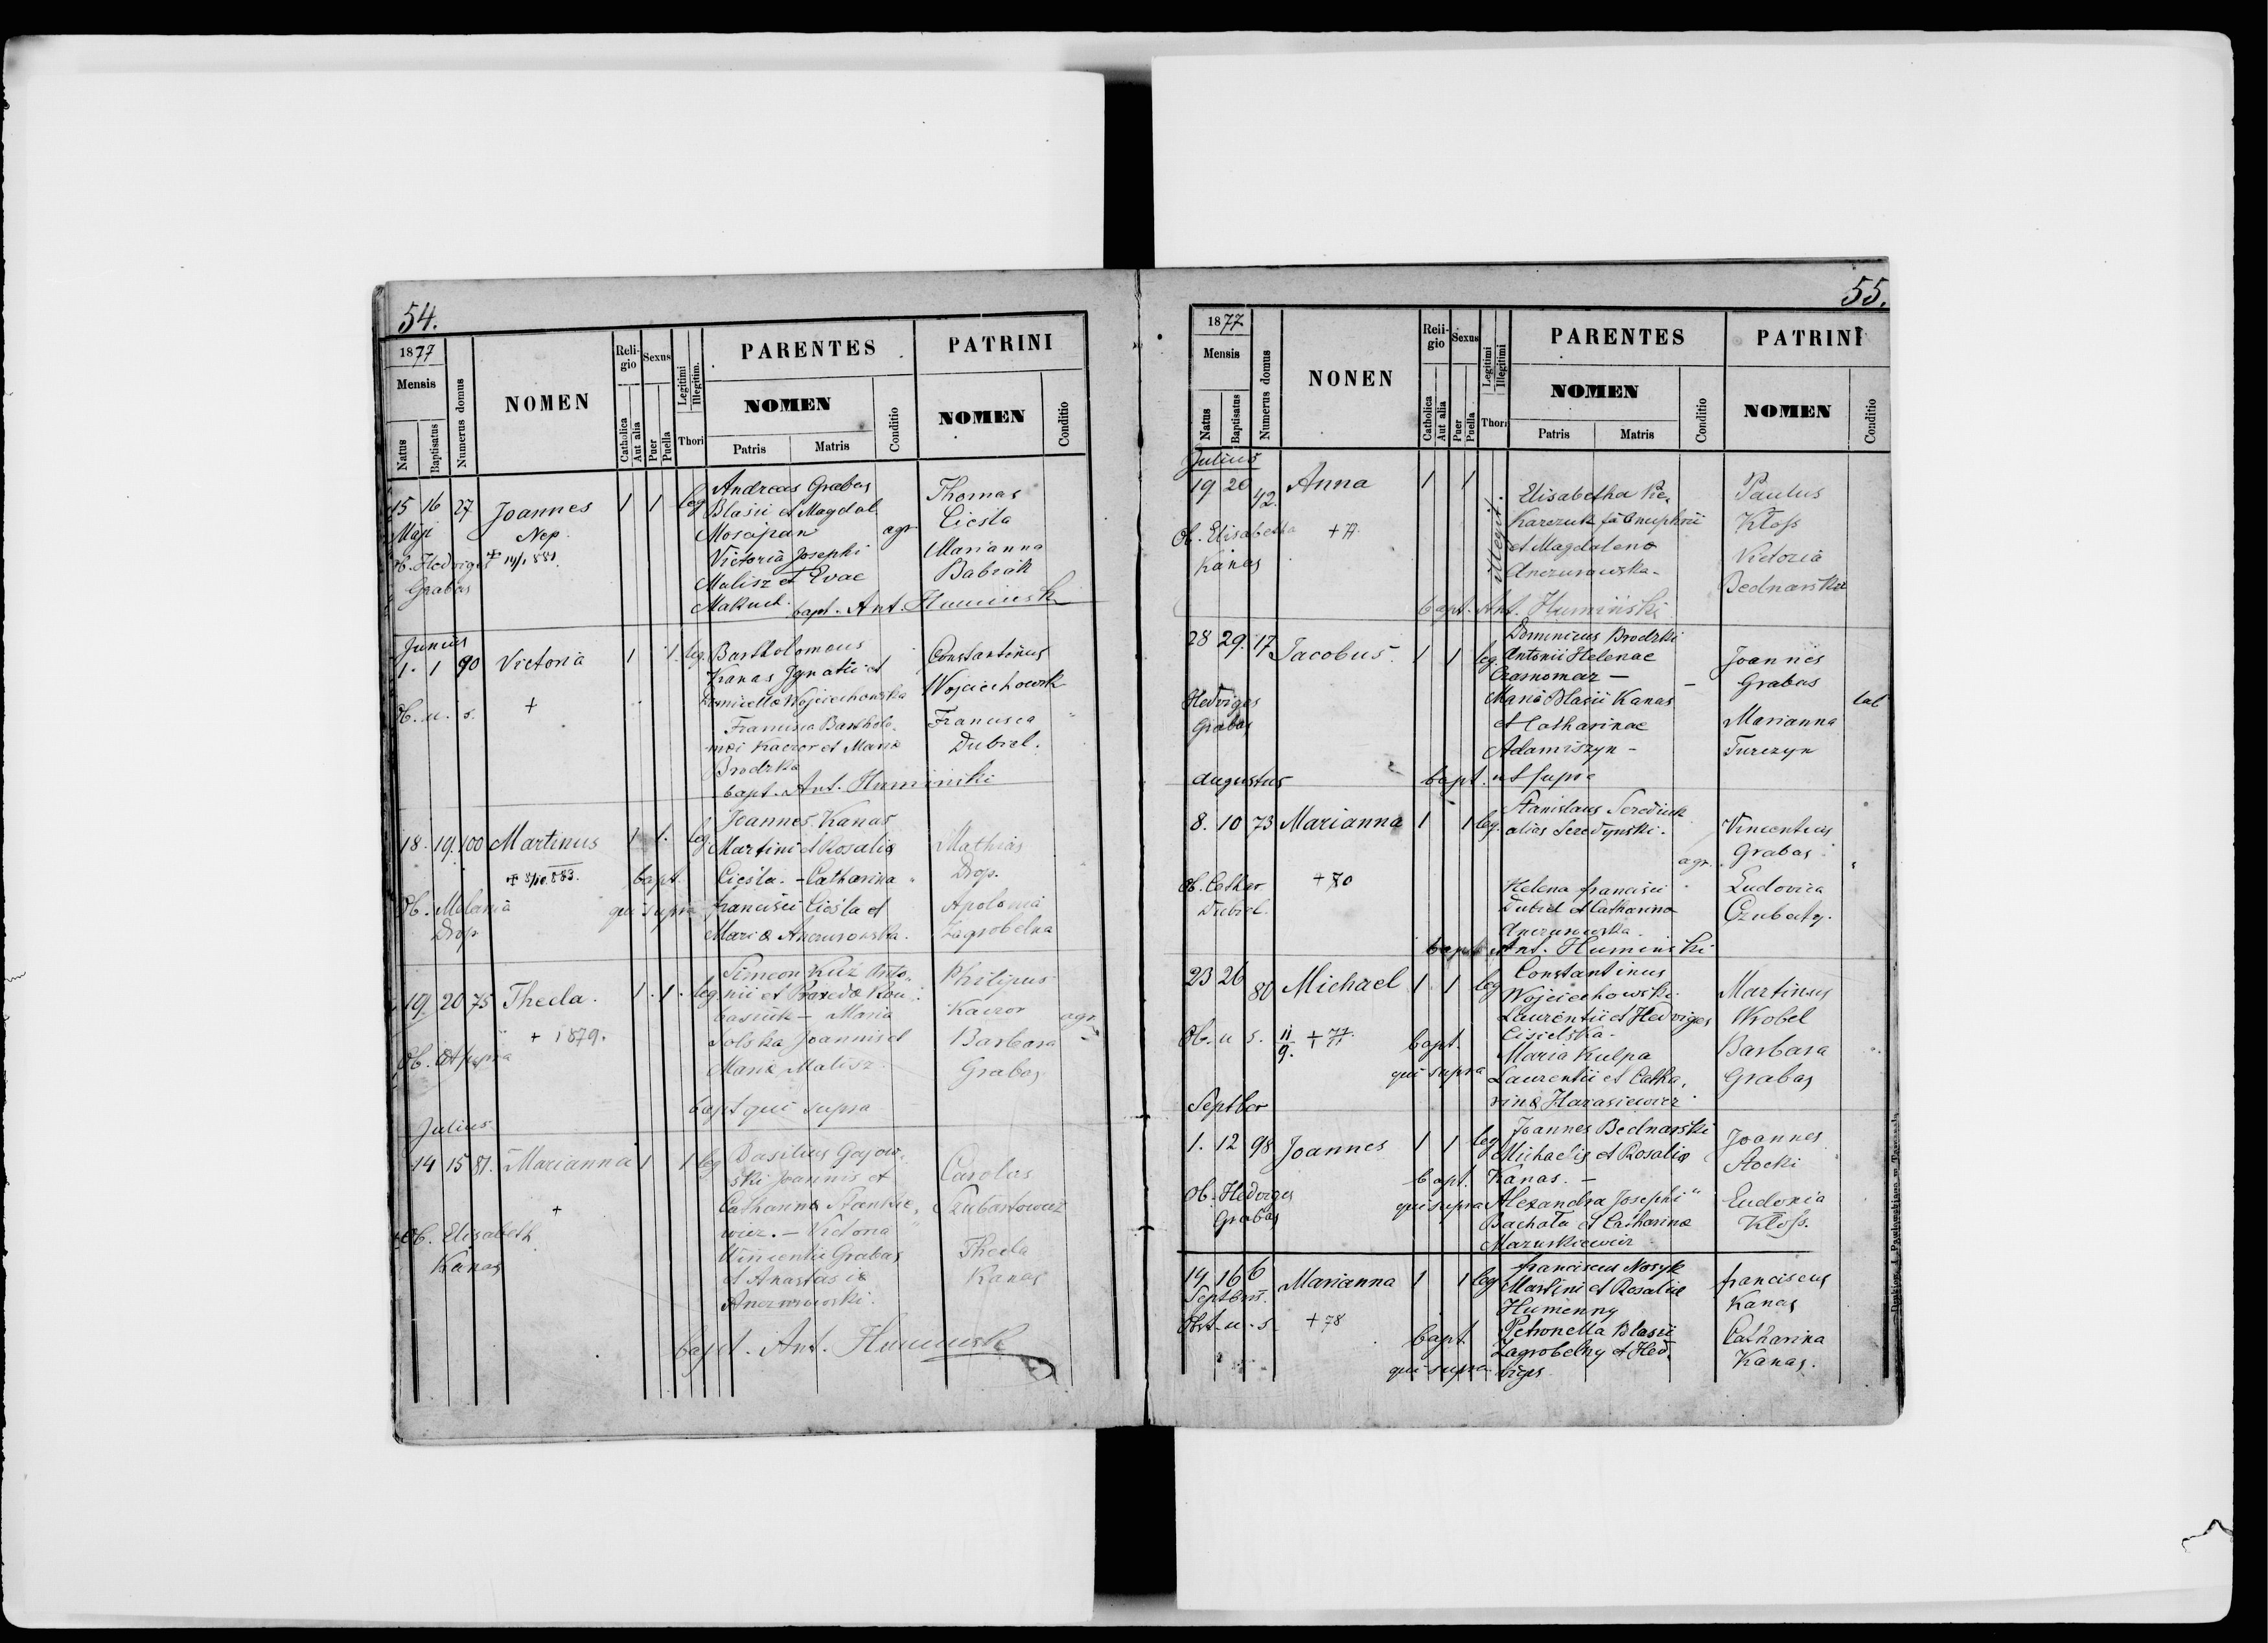 54.
1877
Mensis
Natus
Baptisatus
Numerus domus
NOMEN
Reli-
gio
Catholica
Aut alia
Sexus
Puer
Puella
Legitimi
Illegitim.
Thori
PARENTES
NOMEN
Patris
Matris
Conditio
PATRINI
NOMEN
Conditio
15 16 27 Joannes 1 1 leg
Maji Nep.
Ob. Hedviges
Grabas
Andreas Grabas
Blasii et Magdal.
Moscipan agr.
Victoria Josephi
Malisz et Evae
Makuch. bapt. Ant. Huminsk
Thomas
Cieśla
Marianna
Babiak
Junius
1. 1 90 Victoria 1 1. leg.
Ob. u. s. +
Bartholomeus
Kanas Ignatii et
Wojciechowska
Francisca Bartholo
mei Kaczor et Maria
Brodzka
bapt. Ant. Huminski
Constantinus
Wojciechowsk
Francisca
Dubiel.
18. 19. 100 Martinus 1 1. leg
+ 8/10. 883.
Ob. Melania
Drop
bapt.
qui supra
Joannes Kanas
Martini et Rosalia
Cieśla. - Catharina
francisci Cieśla et
Maria Anczurowska.
Mathias
Drop.
Apolonia
Zagrobelna
19. 20 75 Thecla. 1. 1. leg.
+ 1879.
Ob. ut supra
Simeon Kuź Anto-
nii et
- Maria
Solska Joannis et
Maria Malisz.
bapt qui supra
Philipus
Kaczor agr
Barbara
Grabas
Julius
14 15 81. Marianna 1 1 leg
+
Ob. Elisabeth
Kanas
Basilius Gajow-
ski Joannis et
Catharina Stankie-
wicz. - Victoria
Vincentii Grabas
et Anastasia
Anczurowski.
Carolus
Szubartowicz
Thecla
Kanas
bapt. Ant. Huminsk
55.
1877
Mensis
Natus
Baptisatus
Numerus domus
NONEN
Reii-
gio
Catholica
Aut alia
Sexus
Puer
Puella
Legitimi
Illegitimi
Thori
PARENTES
NOMEN
Patris
Matris
Conditio
PATRINI
NOMEN
Conditio
Julius
19 20 42. Anna 1 1 illegit.
Ob. Elisabetha + 77
Kanas
Elisabetha
Karczuk
et Magdalena
Anczurowska -
bapt. Ant. Humiński
Paulus
Kłoss
Victoria
Bednarska
28 29. 17 Jacobus. 1 1 leg.
Hedviges
Grabas
Dominicus Brodzki
Antonii Helenae
Czarnomaz -
Maria Blasii Kanas
et Catharinae
Adamiszyn -
bapt. ut supra
Joannes
Grabas
Marianna
Turczyn
Augustus
8. 10 73 Marianna 1 1 leg.
Ob. Cathar. + 80
Dubiel.
Stanislaus Serediuk
alias Seredynski.
agr.
Helena francisci
Dubiel et Catharina
Anczurowska.
bapt Ant. Huminski
Vincentius
Grabas
Ludovica
Czubaty.
23 26 80 Michael 1 1 leg
Ob. u s. 11/9. + 77
bapt.
qui supra
Constantinus
Wojciechowski
Laurentii et Hedviges
Cisielska.
Maria Kulpa
Laurentii et Catha-
rina Harasiewicz
Martinus
Wrobel
Barbara
Grabas
Septber
1. 12 98 Joannes 1 1 leg
Ob. Hedviges
Grabas
bapt.
qui supra
Joannes Bednarski
Michaelis et Rosalia
Kanas. -
Alexandra Josephi
Bachata et Catharina
Mazurkiewicz
Joannes
Stocki
Eudoxia
Kłoss.
14 16 6 Marianna 1 1 leg
Septbris.
Obst. u. s. + 78
bapt
qui supra.
franciscus Nosyk
Martini et Rosaliae
Humenny
Petronella Blasii
Zagrobelny et Hed-
viges
franciscus
Kanas
Catharina
Kanas.